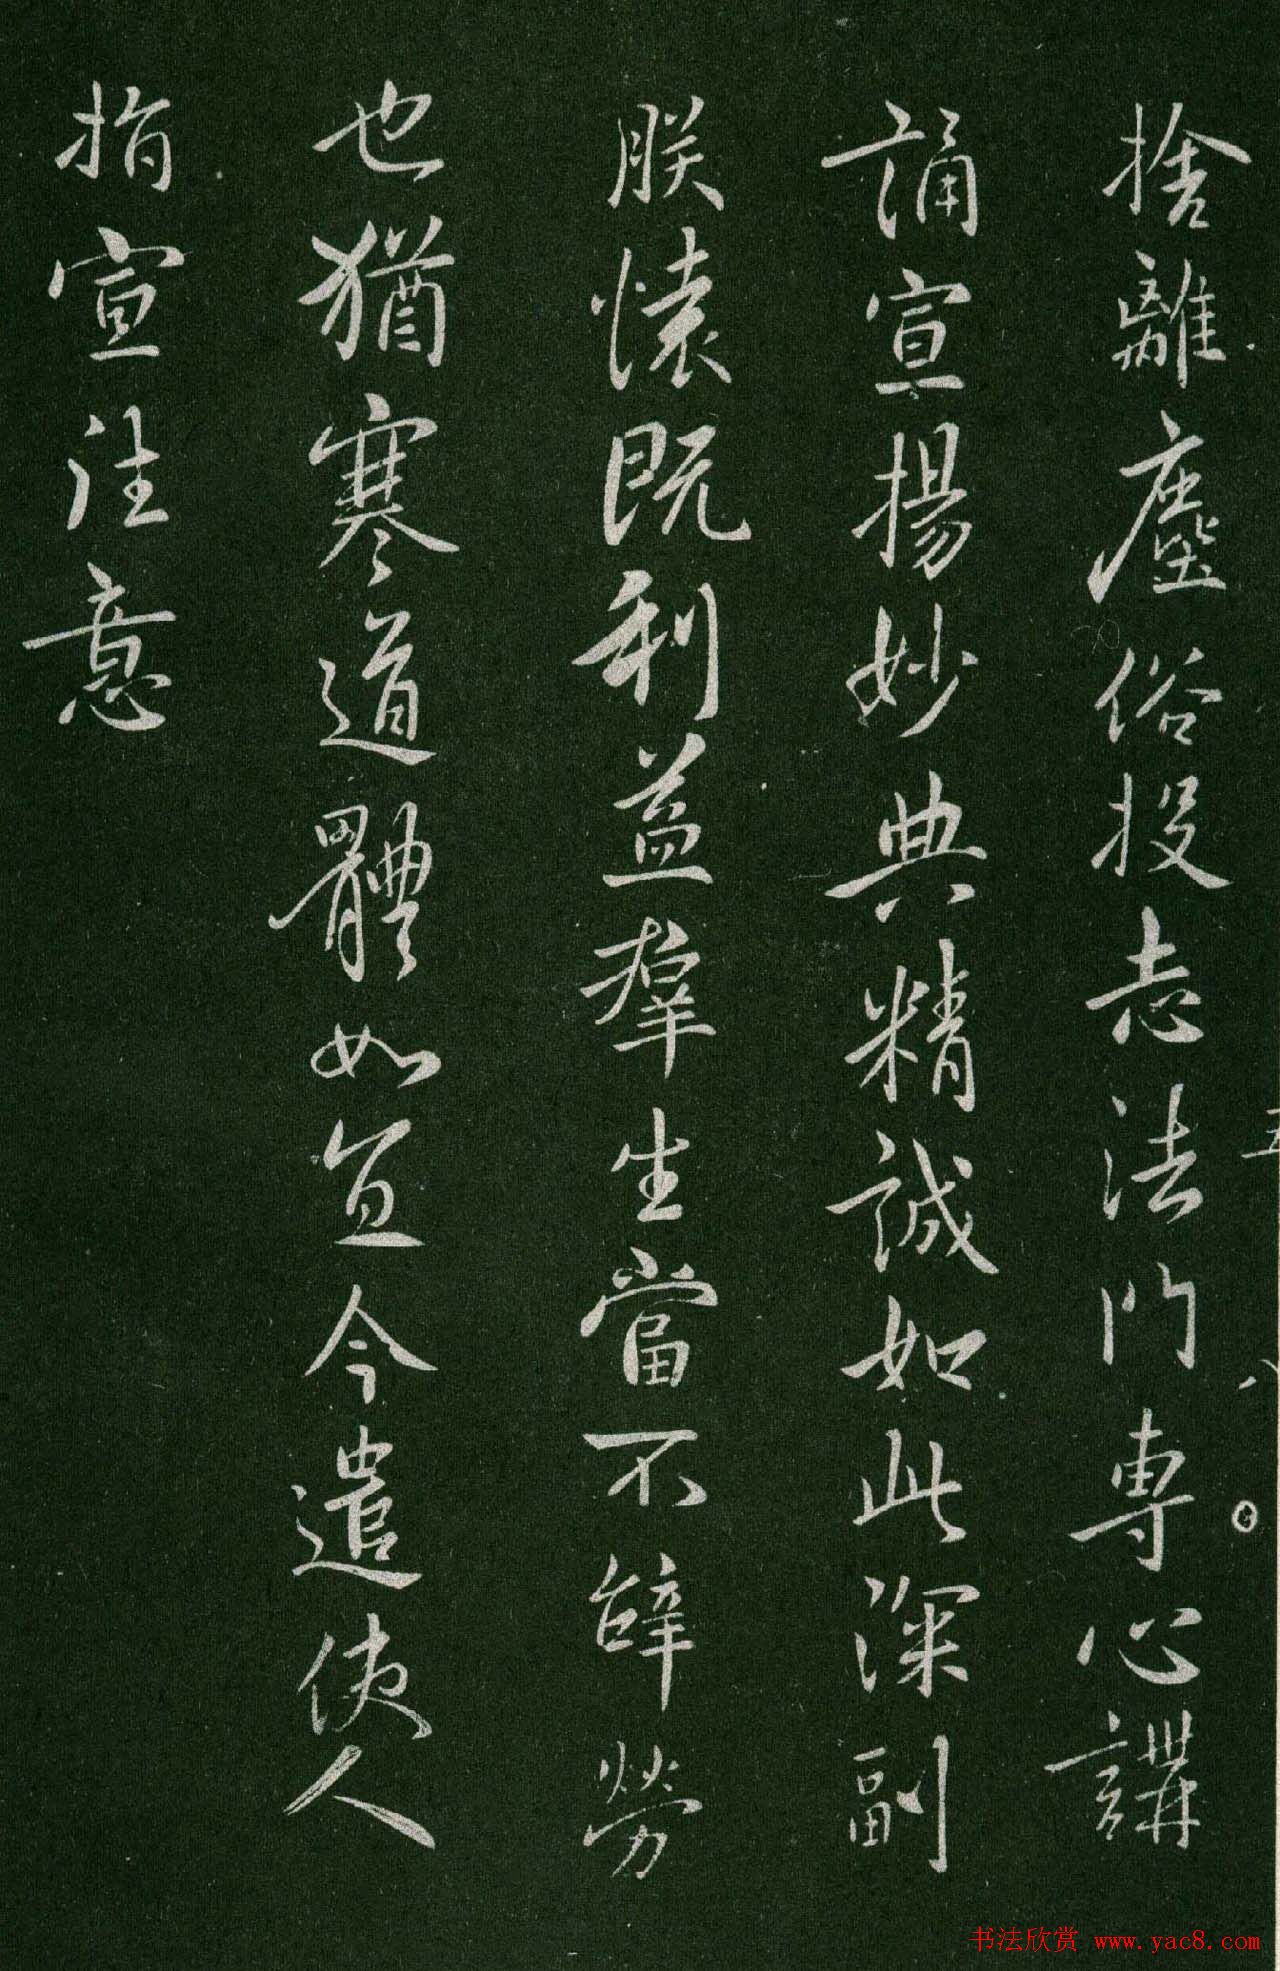 捨離塵俗投志法門專心講
誦宣揚妙典精誠如此深副
朕懷既利益羣生當不辭勞
也猶寒道體如宜今遣使人
指宣往意
五
八
书法欣赏 www.yac8.com